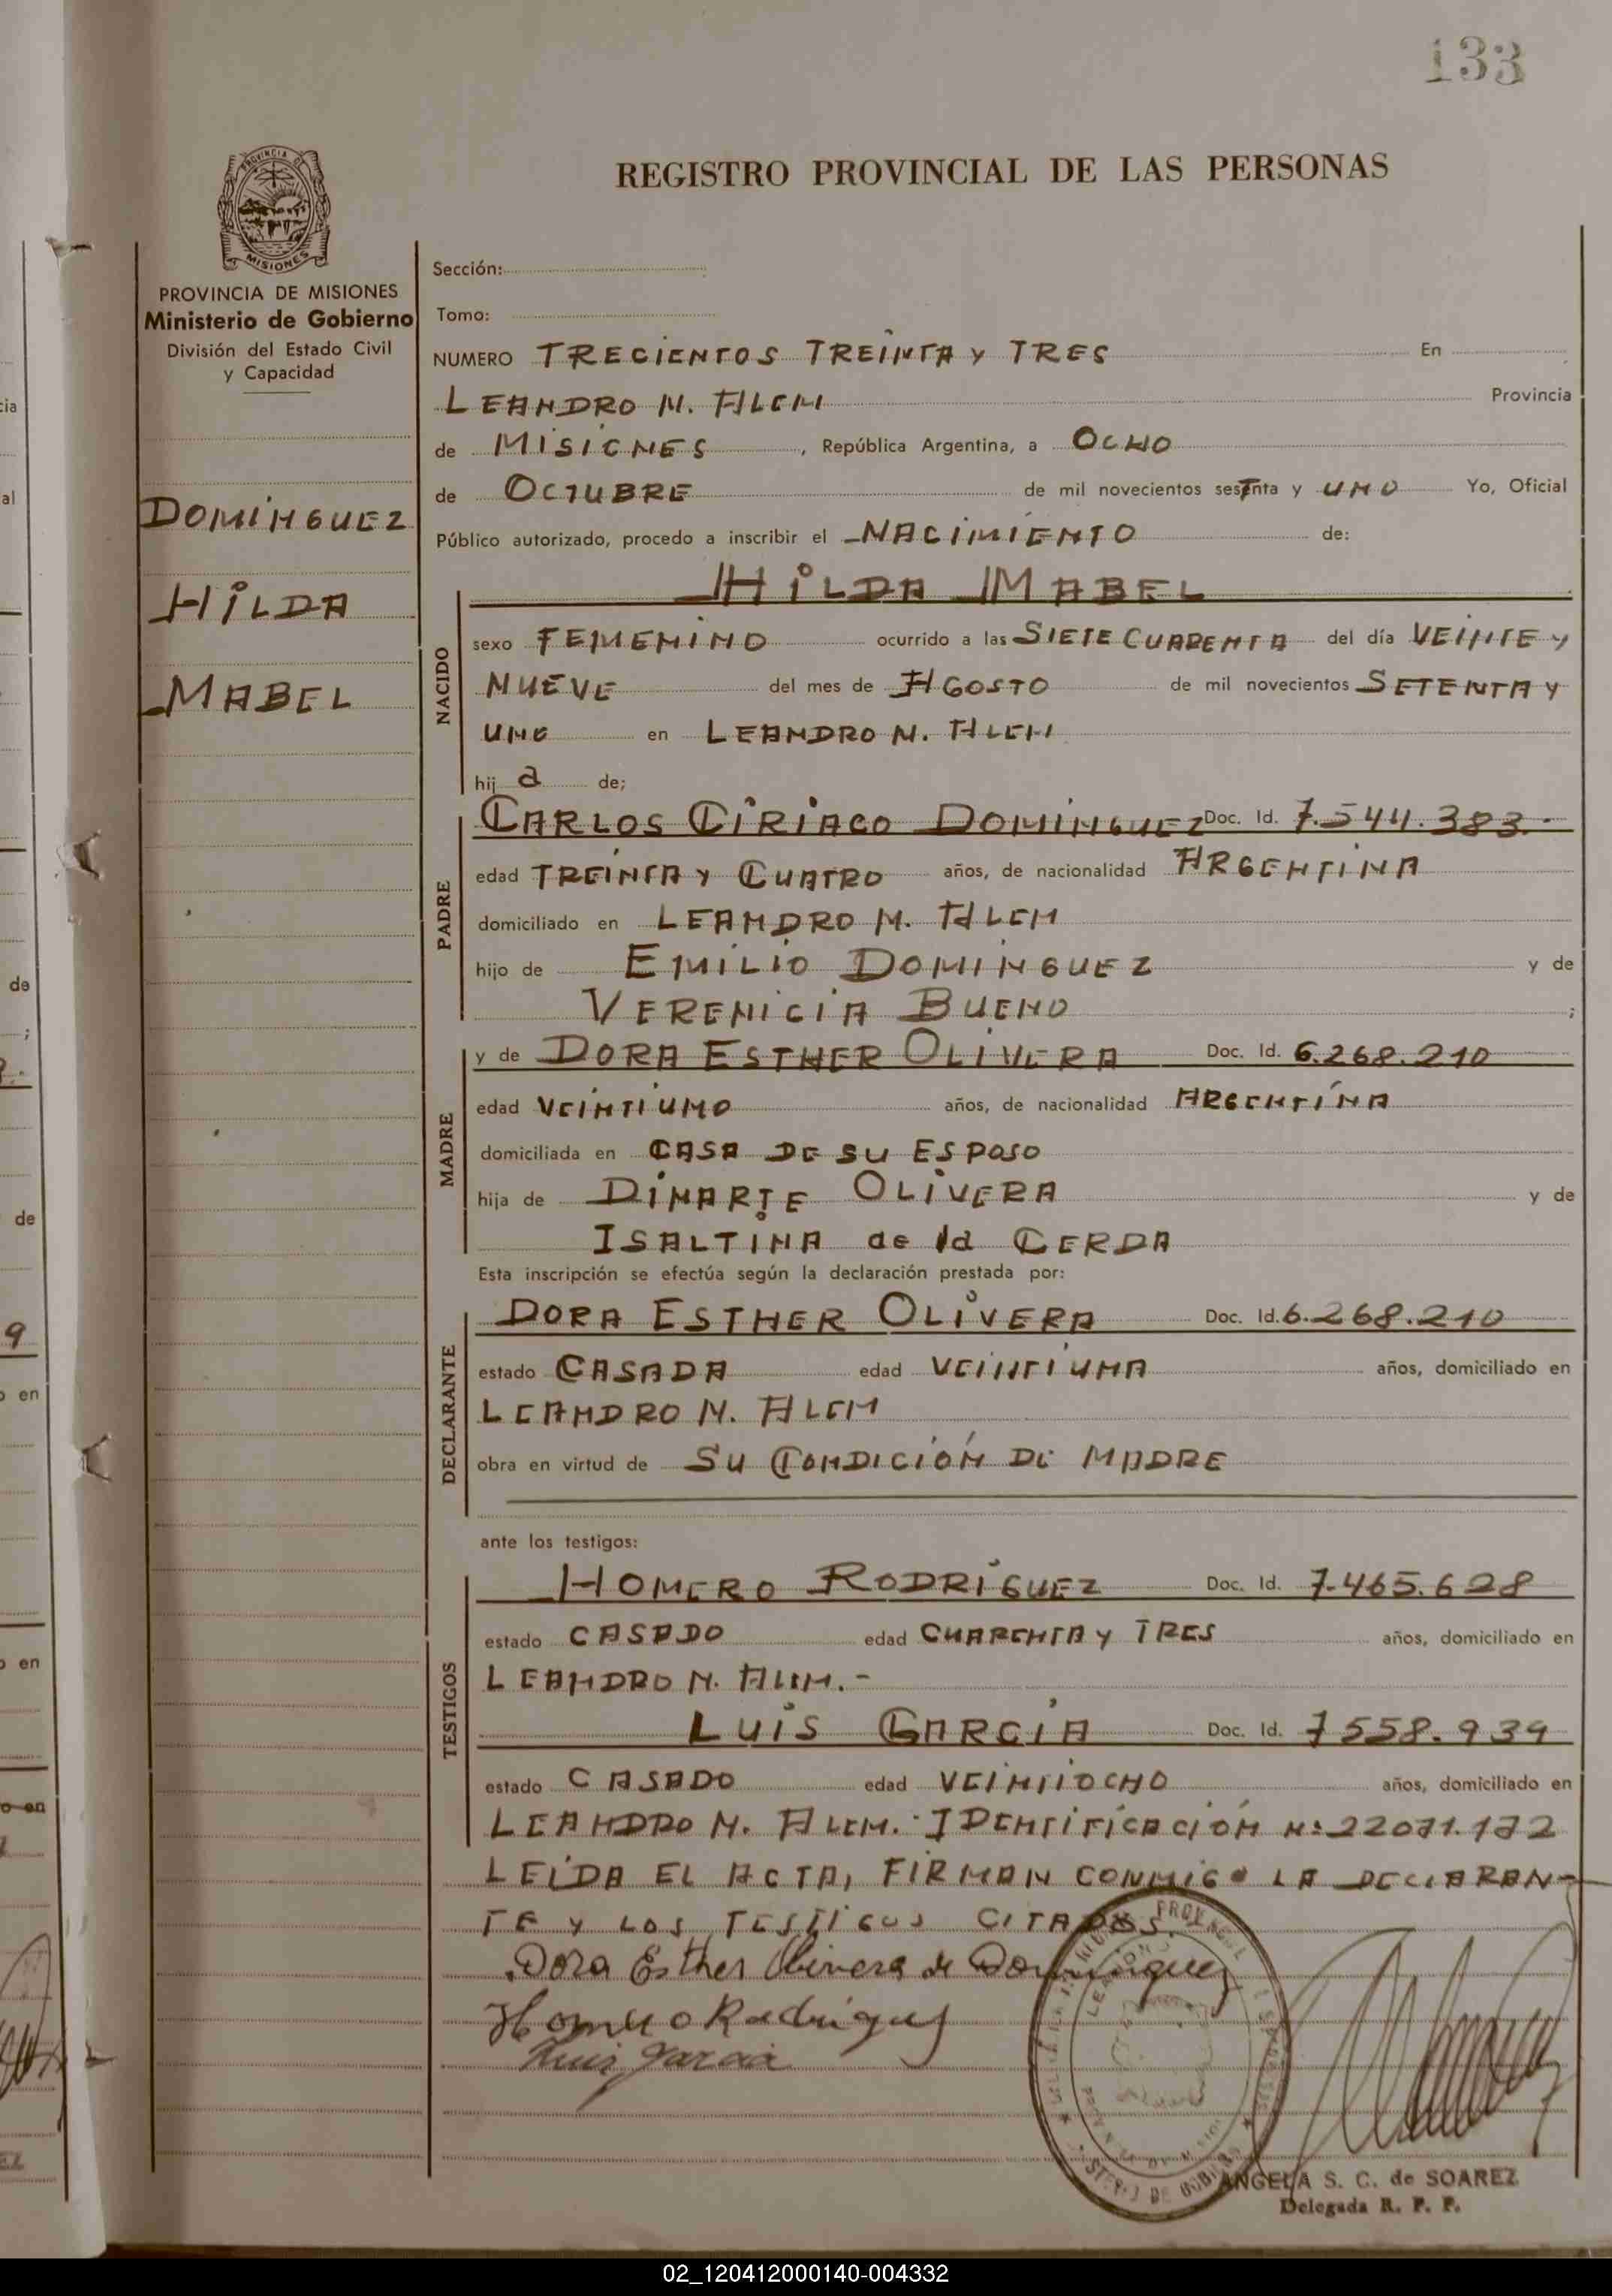 133
REGISTRO PROVINCIAL DE LAS PERSONAS
PROVINCIA DE MISIONES
PROVINCIA DE MISIONES
Ministerio de Gobierno
División del Estado Civil
y Capacidad
DOMINGUEZ
HILDA
MABEL
Sección:
Tomo:
NUMERO TRECIENTOS TREINTA Y TRES En
LEANDRO N. ALEM Provincia
de MISIONES, República Argentina, a OCHO
de OCTUBRE de mil novecientos sesTnta y UNO Yo, Oficial
Público autorizado, procedo a inscribir el NACIMIENTO de:
HILDA MABEL
NACIDO
sexo FEMENINO ocurrido a las SIETE CUARENTA del día VEINTE Y
NUEVE del mes de AGOSTO de mil novecientos SETENTA Y
UNO en LEANDRO N. ALEM
hij a de;
PADRE
CARLOS CIRIACO DOMINGUEZ Doc. Id. 7.544.383.-
edad TREINTA Y CUATRO años, de nacionalidad ARGENTINA
domiciliado en LEANDRO N. ALEM
hijo de EMILIO DOMINGUEZ y de
VERENICIA BUENO ;
MADRE
y de DORA ESTHER OLIVERA Doc. Id. 6.268.210
edad VEINTIUNO años, de nacionalidad ARGENTINA
domiciliada en CASA DE SU ESPOSO
hija de DINARTE OLIVERA y de
ISALTINA de la CERDA
Esta inscripción se efectúa según la declaración prestada por:
DECLARANTE
DORA ESTHER OLIVERA Doc. Id. 6.268.210
estado CASADA edad VEINTIUNA años, domiciliado en
LEANDRO N. ALEM
obra en virtud de SU CONDICIÓN DE MADRE
ante los testigos:
TESTIGOS
HOMERO RODRÍGUEZ Doc. Id. 7.465.628
estado CASADO edad CUARENTA Y TRES años, domiciliado en
LEANDRO N. ALEM.-
LUIS GARCÍA Doc. Id. 7558.939
estado CASADO edad VEINTIOCHO años, domiciliado en
LEANDRO N. ALEM.- IDENTIFICACIÓN Nº 22071.172
LEIDA EL ACTA, FIRMAN CONMIGO LA DECLARAN-
TE Y LOS TESTIGOS CITADOS.
Dora Esther Olivera de Dominguez
Homero Rodriguez
Luis Garcia
ANGELA S. C. de SOAREZ
Delegada R. P. P.
02_120412000140-004332